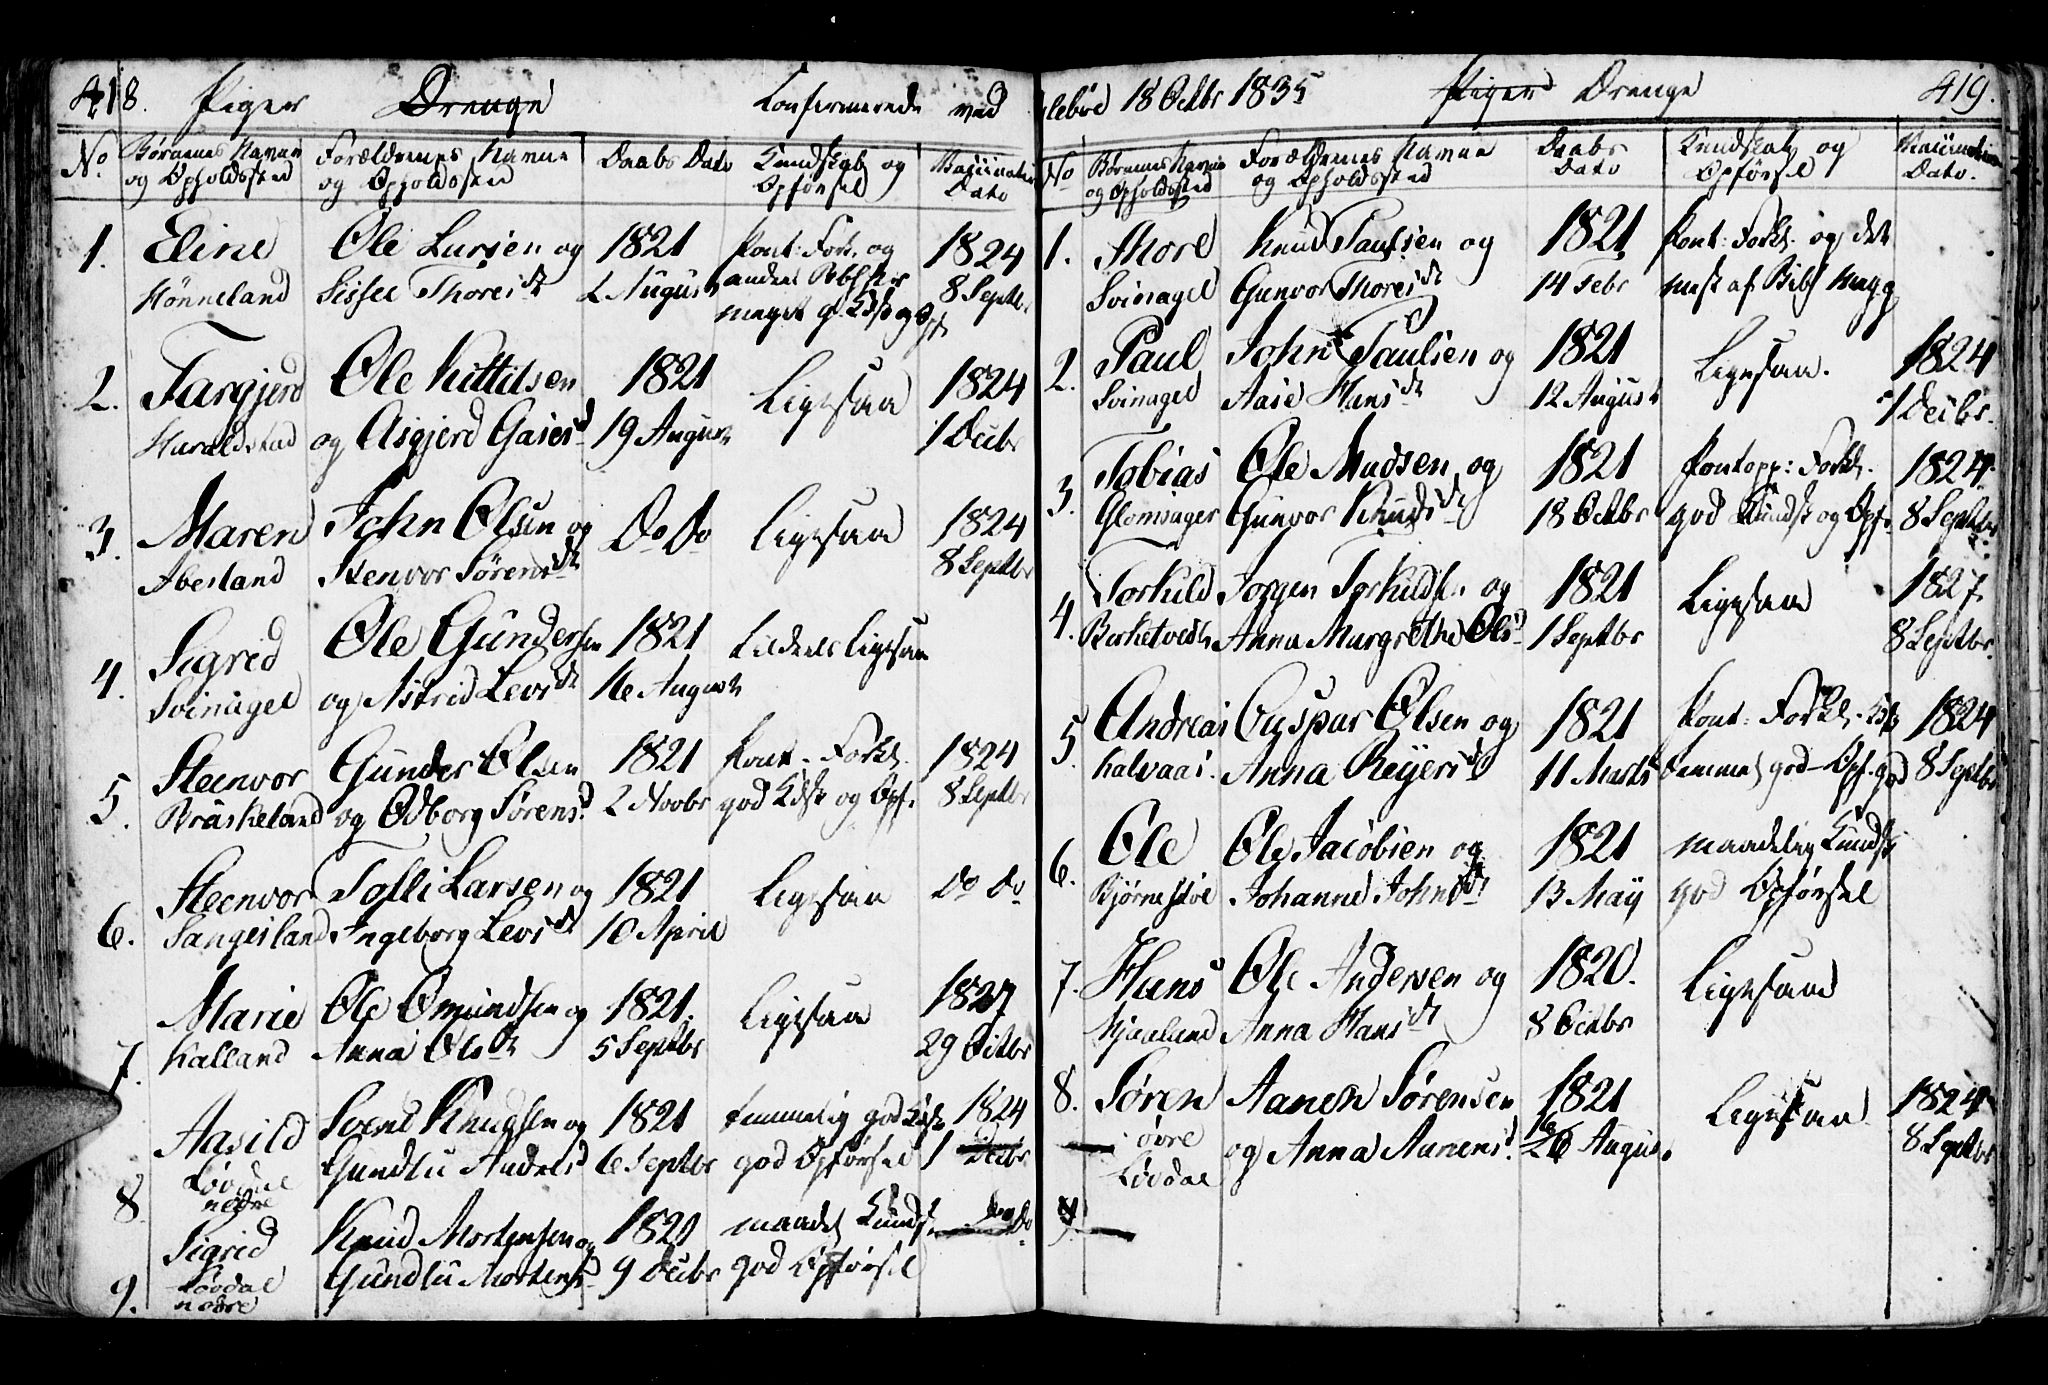 418. Piger Drenge Confirmerede ved
No Børnenes Navne og Opholdssted Forældrenes Navne og Opholdssted Daabs Dato Kundskab og Opførsel Vaccination Dato
1. Eline Ole Larsen og 1821 Pont: Fork. og 1824
Hønneland Sissel Thores dt 2 August anden 8 Septbr
meget g. Kdsk og Opf
2. Targjerd Ole Kittilsen 1821 Ligesaa 1824
Haraldstad og Asgjerd Gases d 19 August 1 Decbr
3. Maren John Olsen og Do Do Ligesaa 1824
Abesland Stenvor Sørens dt 8 Septbr
4. Sigrid Ole Gundersen 1821 Ligesaa
Svinagel og Astrid Levs dt 16 August
5. Steenvor Gunder Olsen 1821 Pont. Forkl. 1824
Bråskeland og Odborg Sørens d 2 Novbr god Kdsk og Opf. 8 Septbr
6. Steenvor Tolli Larsen og 1821 Ligesaa Do Do
Sangesland Ingeborg Levs dt 10 April
7. Marie Ole Omundsen og 1821. Ligesaa 1827
Kalland Anna Ols dt 5 Septbr 29 Octbr
8. Aasild Svend Knudsen og 1821 temmelig god Kdsk 1824
Løvdal Gundlu Anders d 6 Septbr god Opførsel 1 Decbr
nedre
9. Sigrid Knud Mortensen og 1820 maadel Kundsk Do Do
Løvdal Gundlu Mortens d 9 Decbr god Opførsel
nedre
18 Octbr 1835 Piger Drenge 419.
No Børnenes Navne og Opholdssted Forældrenes Navne og Opholdssted Daabs Dato Kundskab og Opførsel Vaccination Dato.
1. Thore Knud Paulsen og 1821 Pont: Forkl. og det
Svinagel Gunvor Thores dt 14 Febr mest af
2. Paul John Paulsen og 1821 Ligesaa. 1824
Svinagel Aase Hans dt 12 August 1 Decbr.
3. Tobias Ole Madsen og 1821 Pontopp: Forkl. 1824.
Glomsager Gunvor Knuds dt 18 Octbr god Kundsk og Opf. 8 Septbr
4. Torkild Jorgen Torkildsen og 1821 Ligesaa 1827.
Birketvedt Anna Margrethe Ols d 1 Septbr 8 Septbr.
5. Andreas Caspar Olsen og 1821 Pont: Forkl. 1824
Kalvaas. Anna Reyers dt 11 Marts temmel god Opf. god 8 Septbr
6. Ole Ole Jacobsen og 1821 maadelig Kundsk
Bjørnestøl Johanne Johns dt 13 May god Opførsel
7. Hans Ole Andersen og 1820. Ligesaa
Anna Hans dt 8 Octbr
8. Søren Aanen Sørensen 1821 Ligesaa 1824
øvre og Anna Aanens d. 26 August 8 Septbr
Løvdal
9.